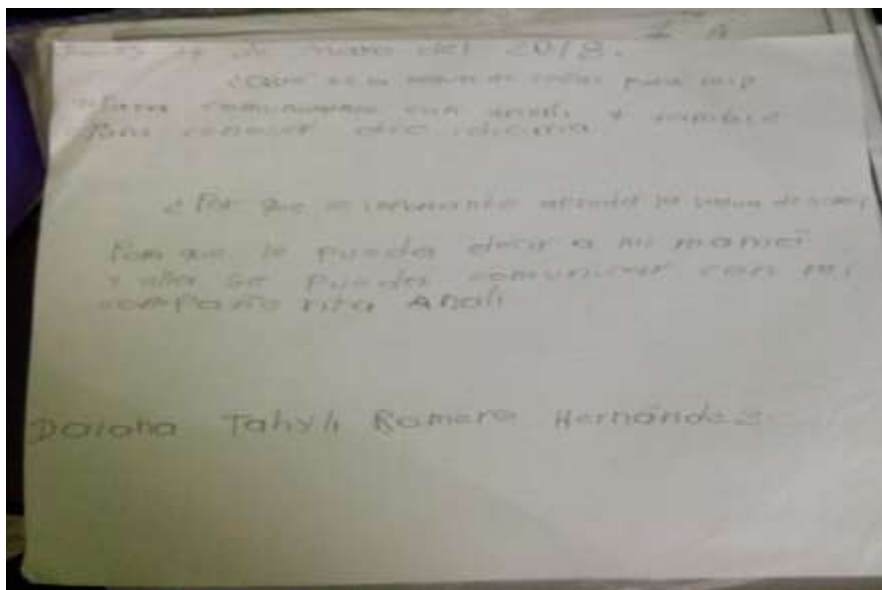 de mayo del 2018.
¿Que es la lengua de señas para mi?
Para comunicarme con Anali, y
Para conocer otro idioma
¿Por que es importante aprender la lengua de señas?
Para que le pueda decir a mi mamá
y ella se pueda comunicar con mi
compañerita Anali
Romero Hernández